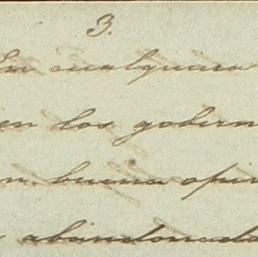 3.
En cualquiera
en los gobern
on. buena opin
abandonada